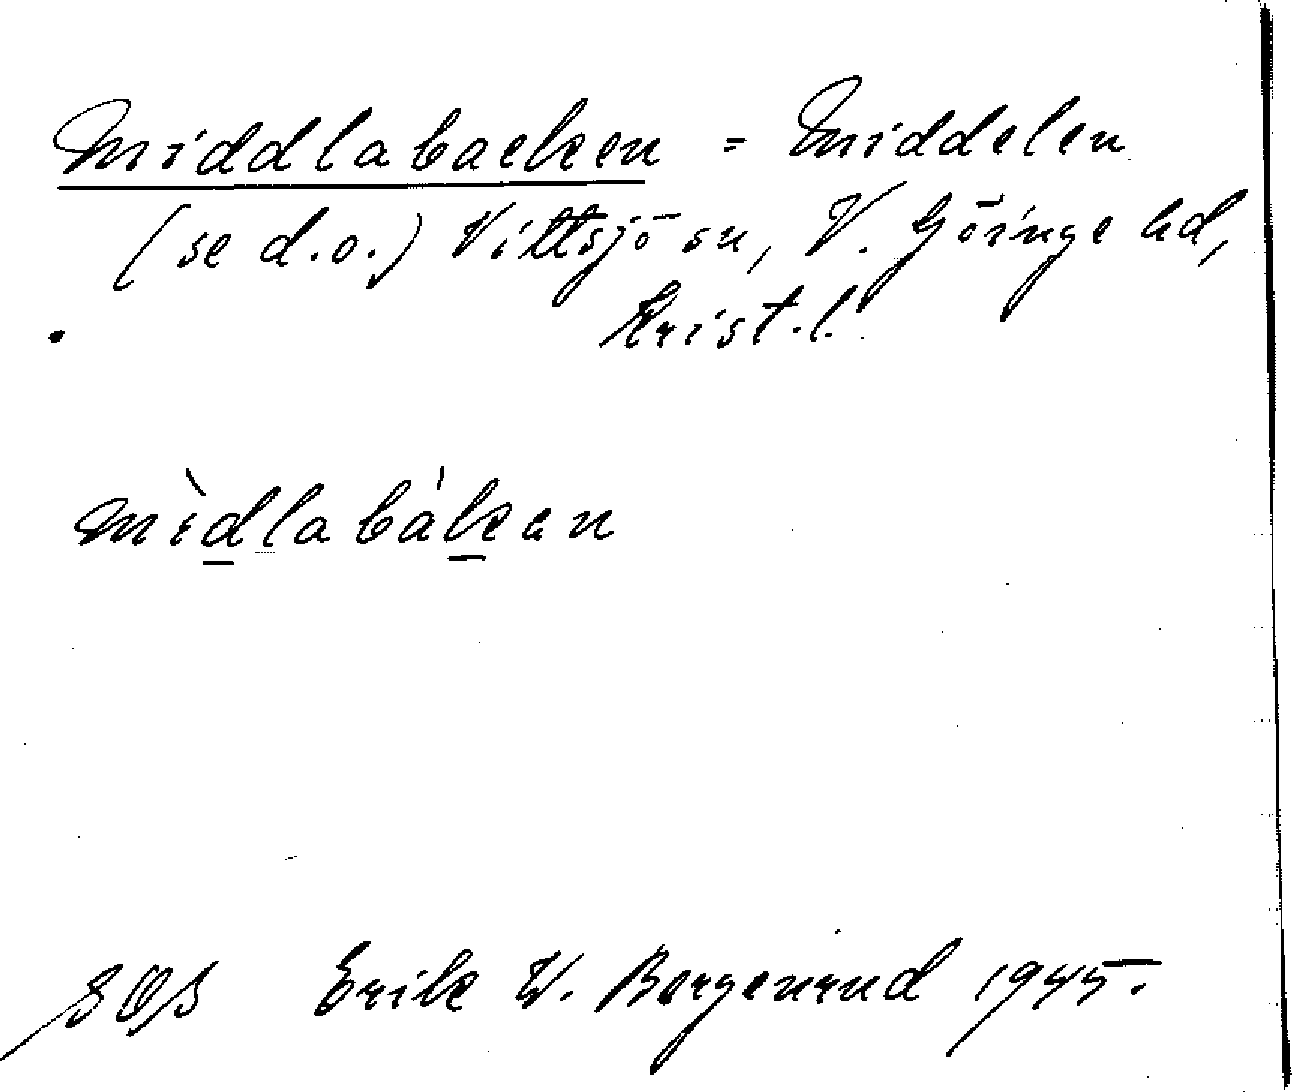 Middlabacken = Middelen
(se d.o.) Vittsjö sn, V. Göinge hd,
Krist.l.
mìdlabákan
SOS Erik W. Bergenrud 1945.